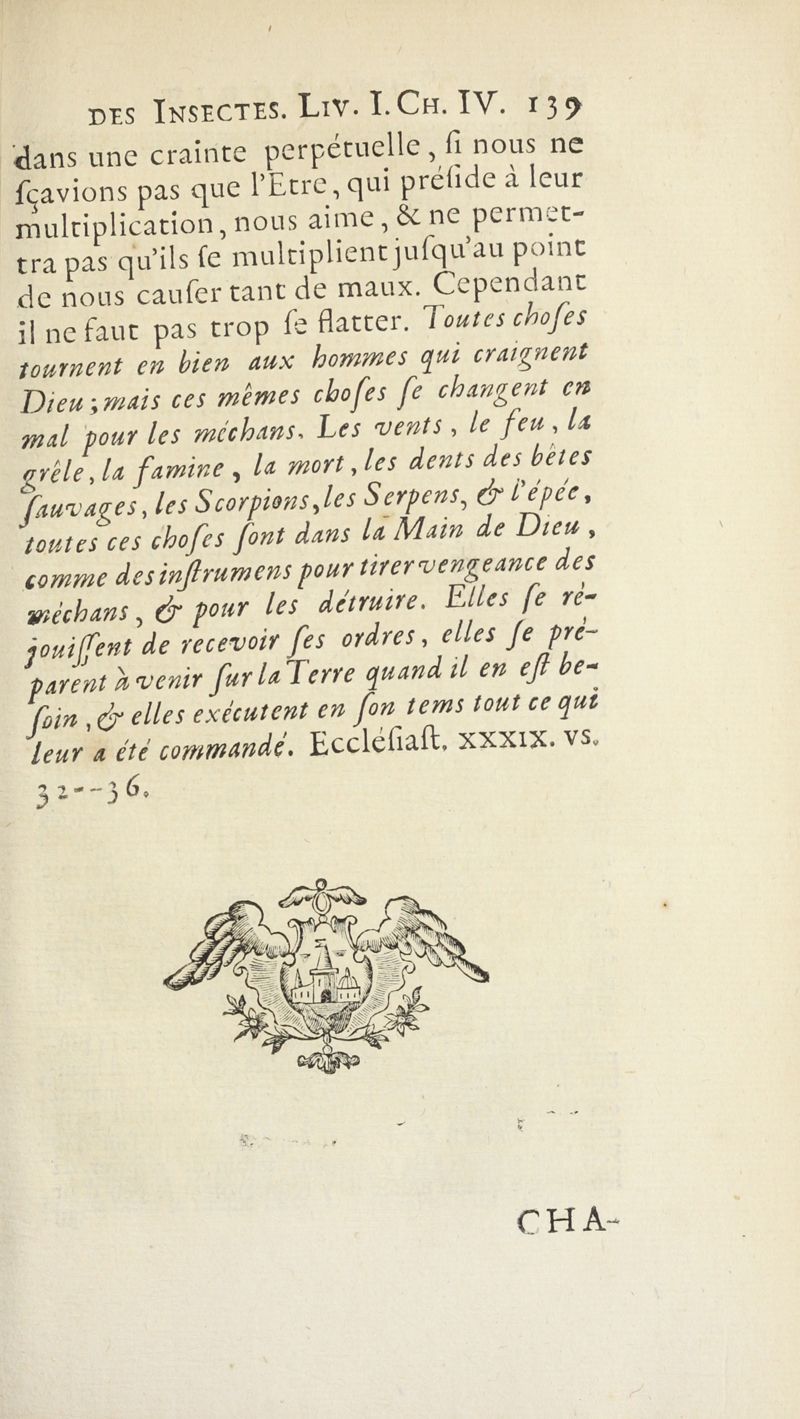 DES INSECTES. LIV. I. CH. IV. 139
dans une crainte perpétuelle, ſi nous ne
ſçavions pas que l'Etre, qui préſide à leur
multiplication, nous aime, & ne permet-
tra pas qu'ils ſe multiplient juſqu'au point
de nous cauſer tant de maux. Cependant
il ne faut pas trop ſe flatter. Toutes choſes
tournent en bien aux hommes qui craignent
Dieu; mais ces mêmes choſes ſe changent en
mal pour les méchans. Les vents, le feu, la
grêle, la famine, la mort, les dents des bêtes
ſauvages, les Scorpions, les Serpens, & l'épée,
toutes ces choſes ſont dans la Main de Dieu,
comme des inſtrumens pour tirer vengeance des
méchans, & pour les détruire. Elles ſe ré-
jouiſſent de recevoir ſes ordres, elles ſe pré-
parent à venir ſur la Terre quand il en eſt be-
ſoin, & elles exécutent en ſon tems tout ce qui
leur a été commandé. Eccléſiaſt. XXXIX. vs.
32--36.
CHA-